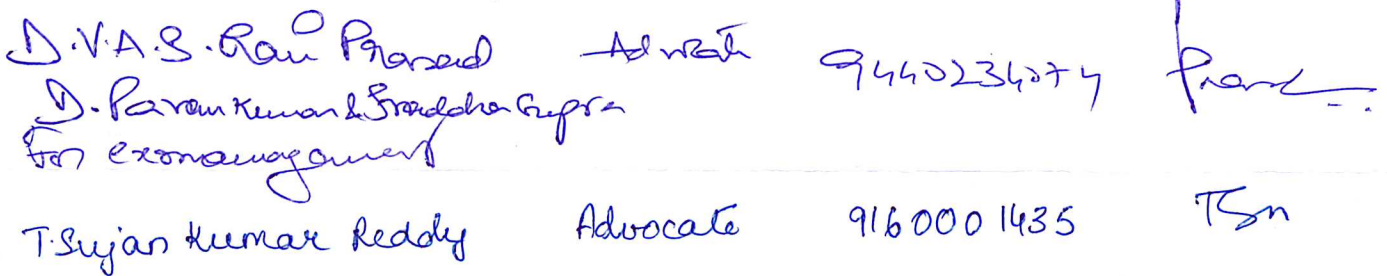 D.V.A.S. Ravi Prasad Advocate 9440234074 Prasad
D. Pavan Kumar & Sraddha Gupta
For exmanagement
T. Sujan Kumar Reddy Advocate 9160001435 TSn